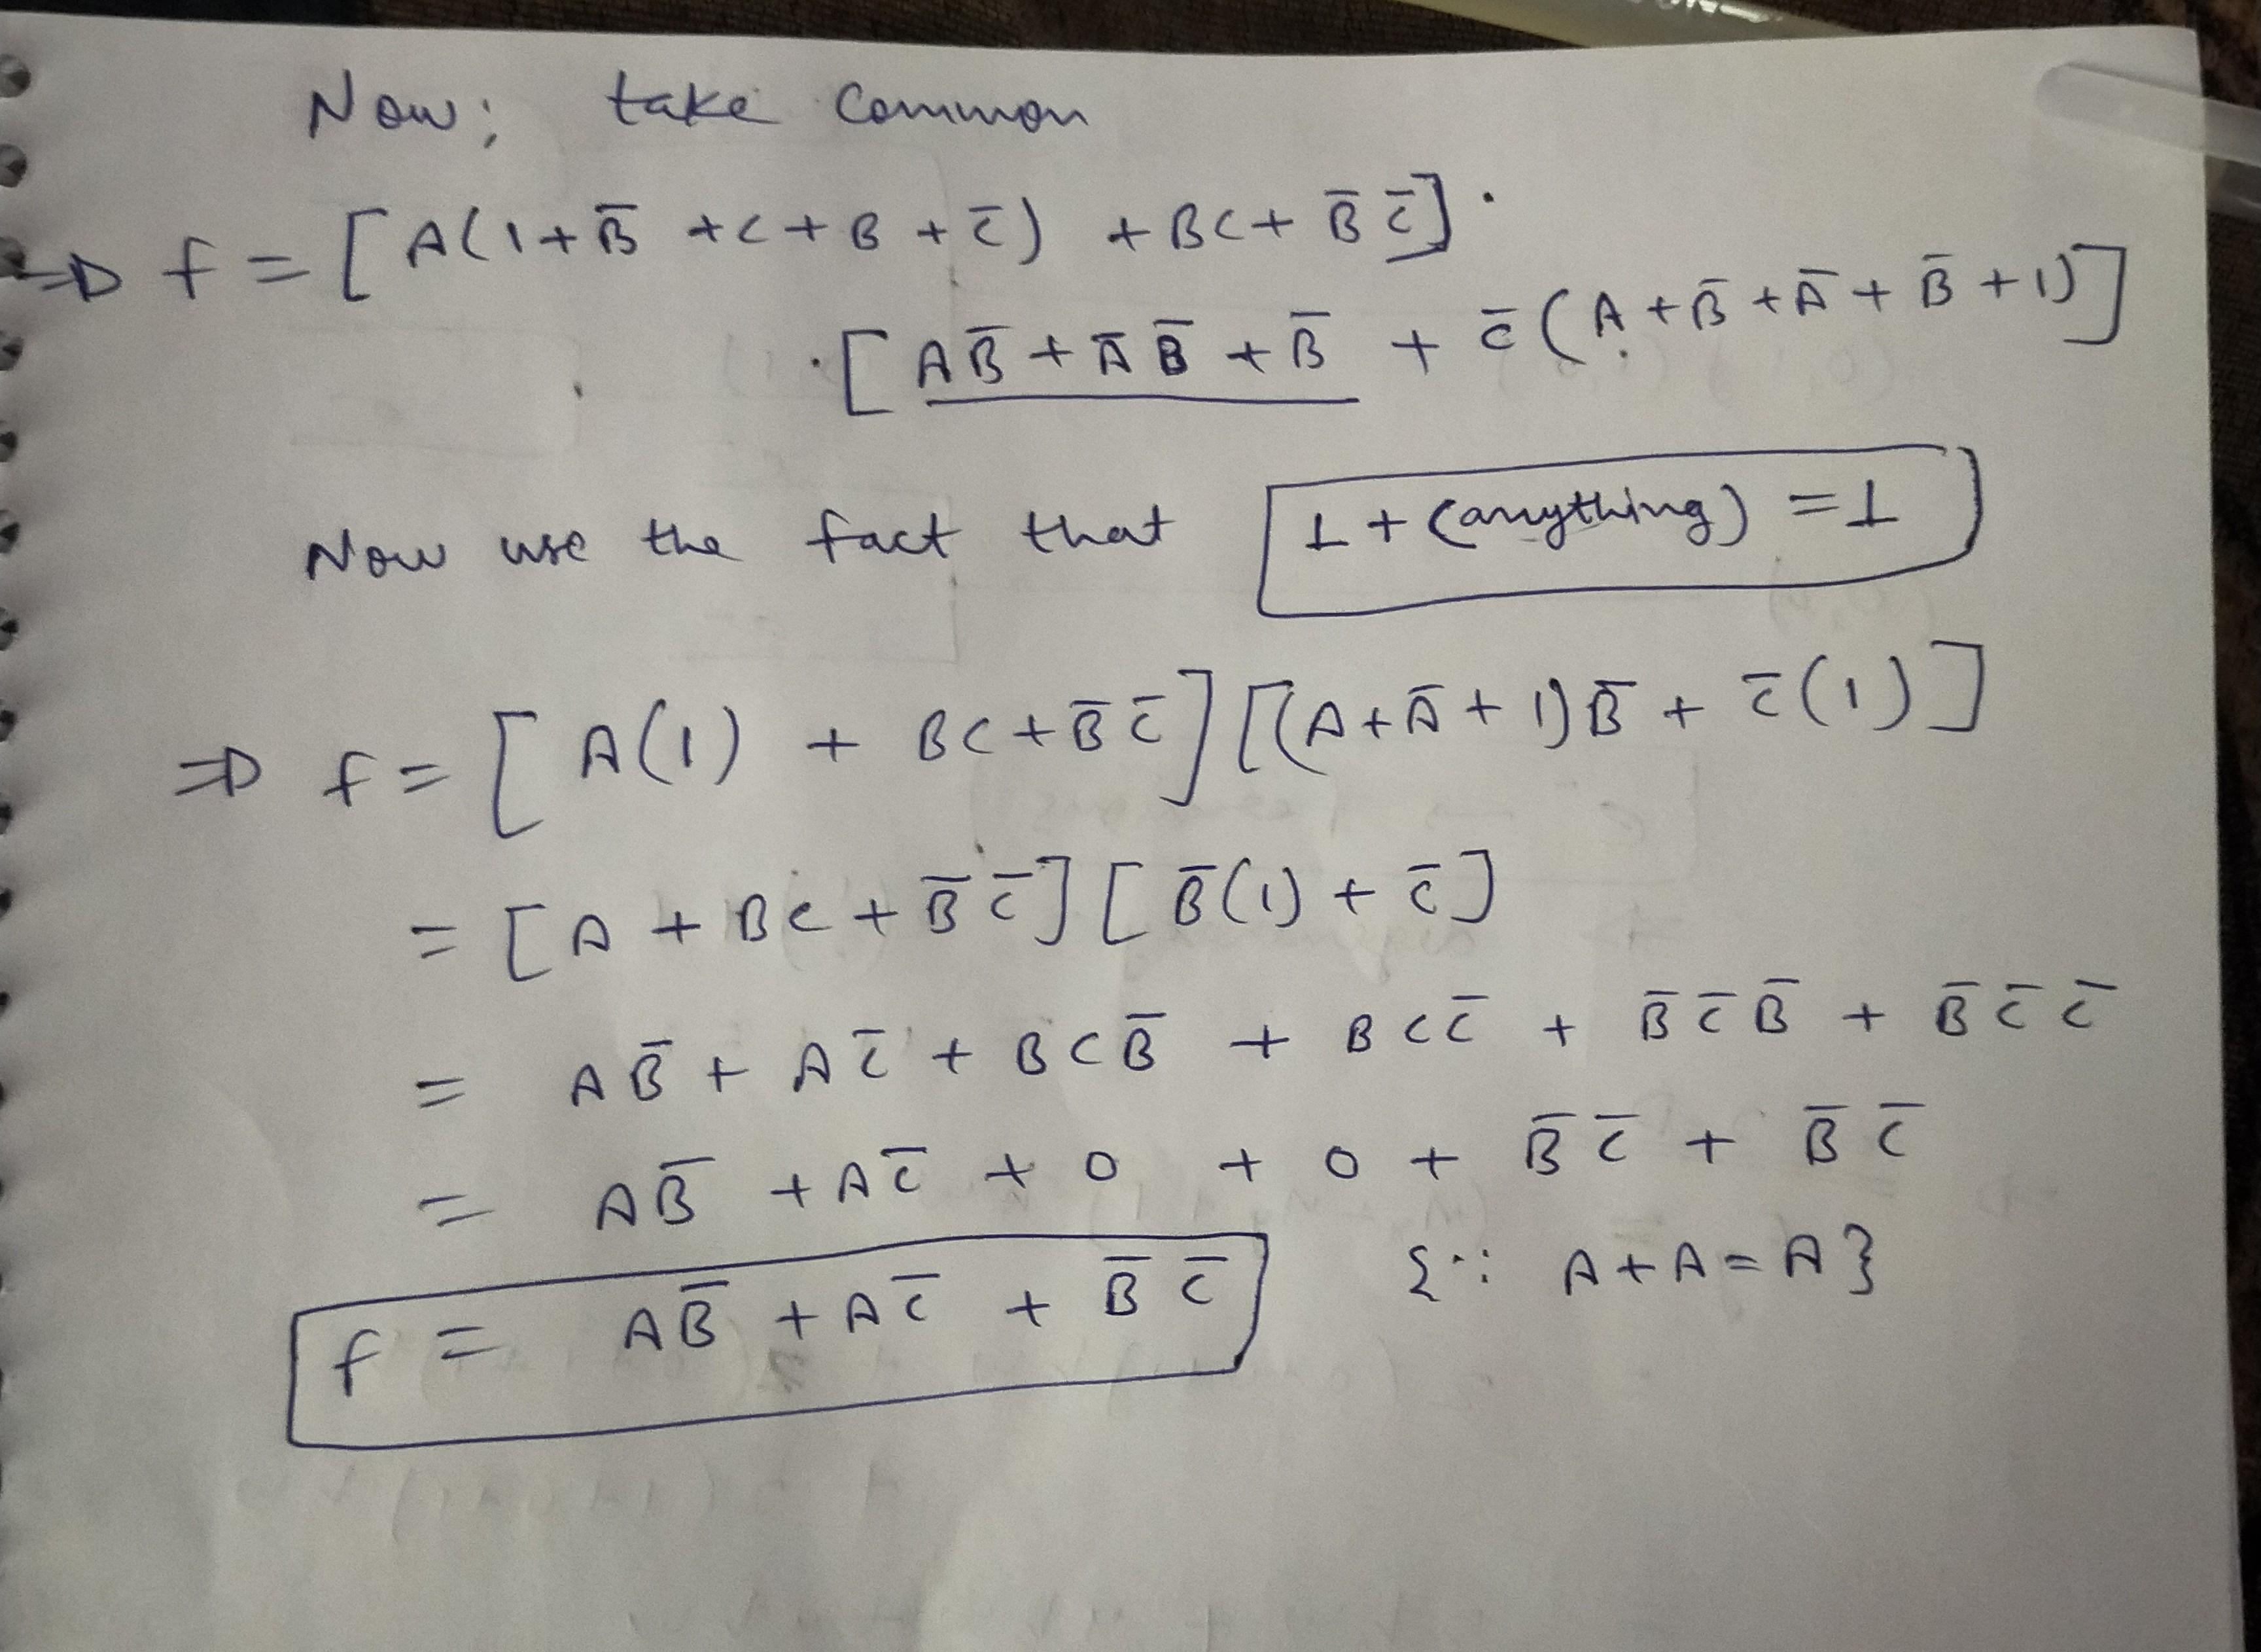 Now; take Common
⇒ f = [A(1+B̅ +C+B+C̅) +BC+ B̅ C̅] ·
·[AB̅ + A̅ B̅ + B̅ + C̅(A+B̅+A̅+B̅+1)]
Now use the fact that 1+(anything) =1
⇒ f = [A(1) + BC+B̅C̅] [(A+A̅+1)B̅ + C̅(1)]
= [A + BC + B̅C̅] [B̅(1) + C̅]
= AB̅ + AC̅ + BCB̅ + BCC̅ + B̅C̅B̅ + B̅C̅C̅
= AB̅ +AC̅ + 0 + 0 + B̅C̅ + B̅C̅
f = AB̅ +AC̅ + B̅C̅ {∵ A+A=A}